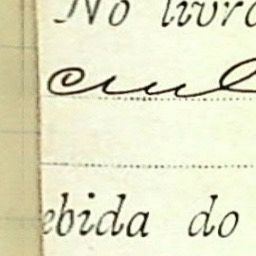 No livro
ebida do